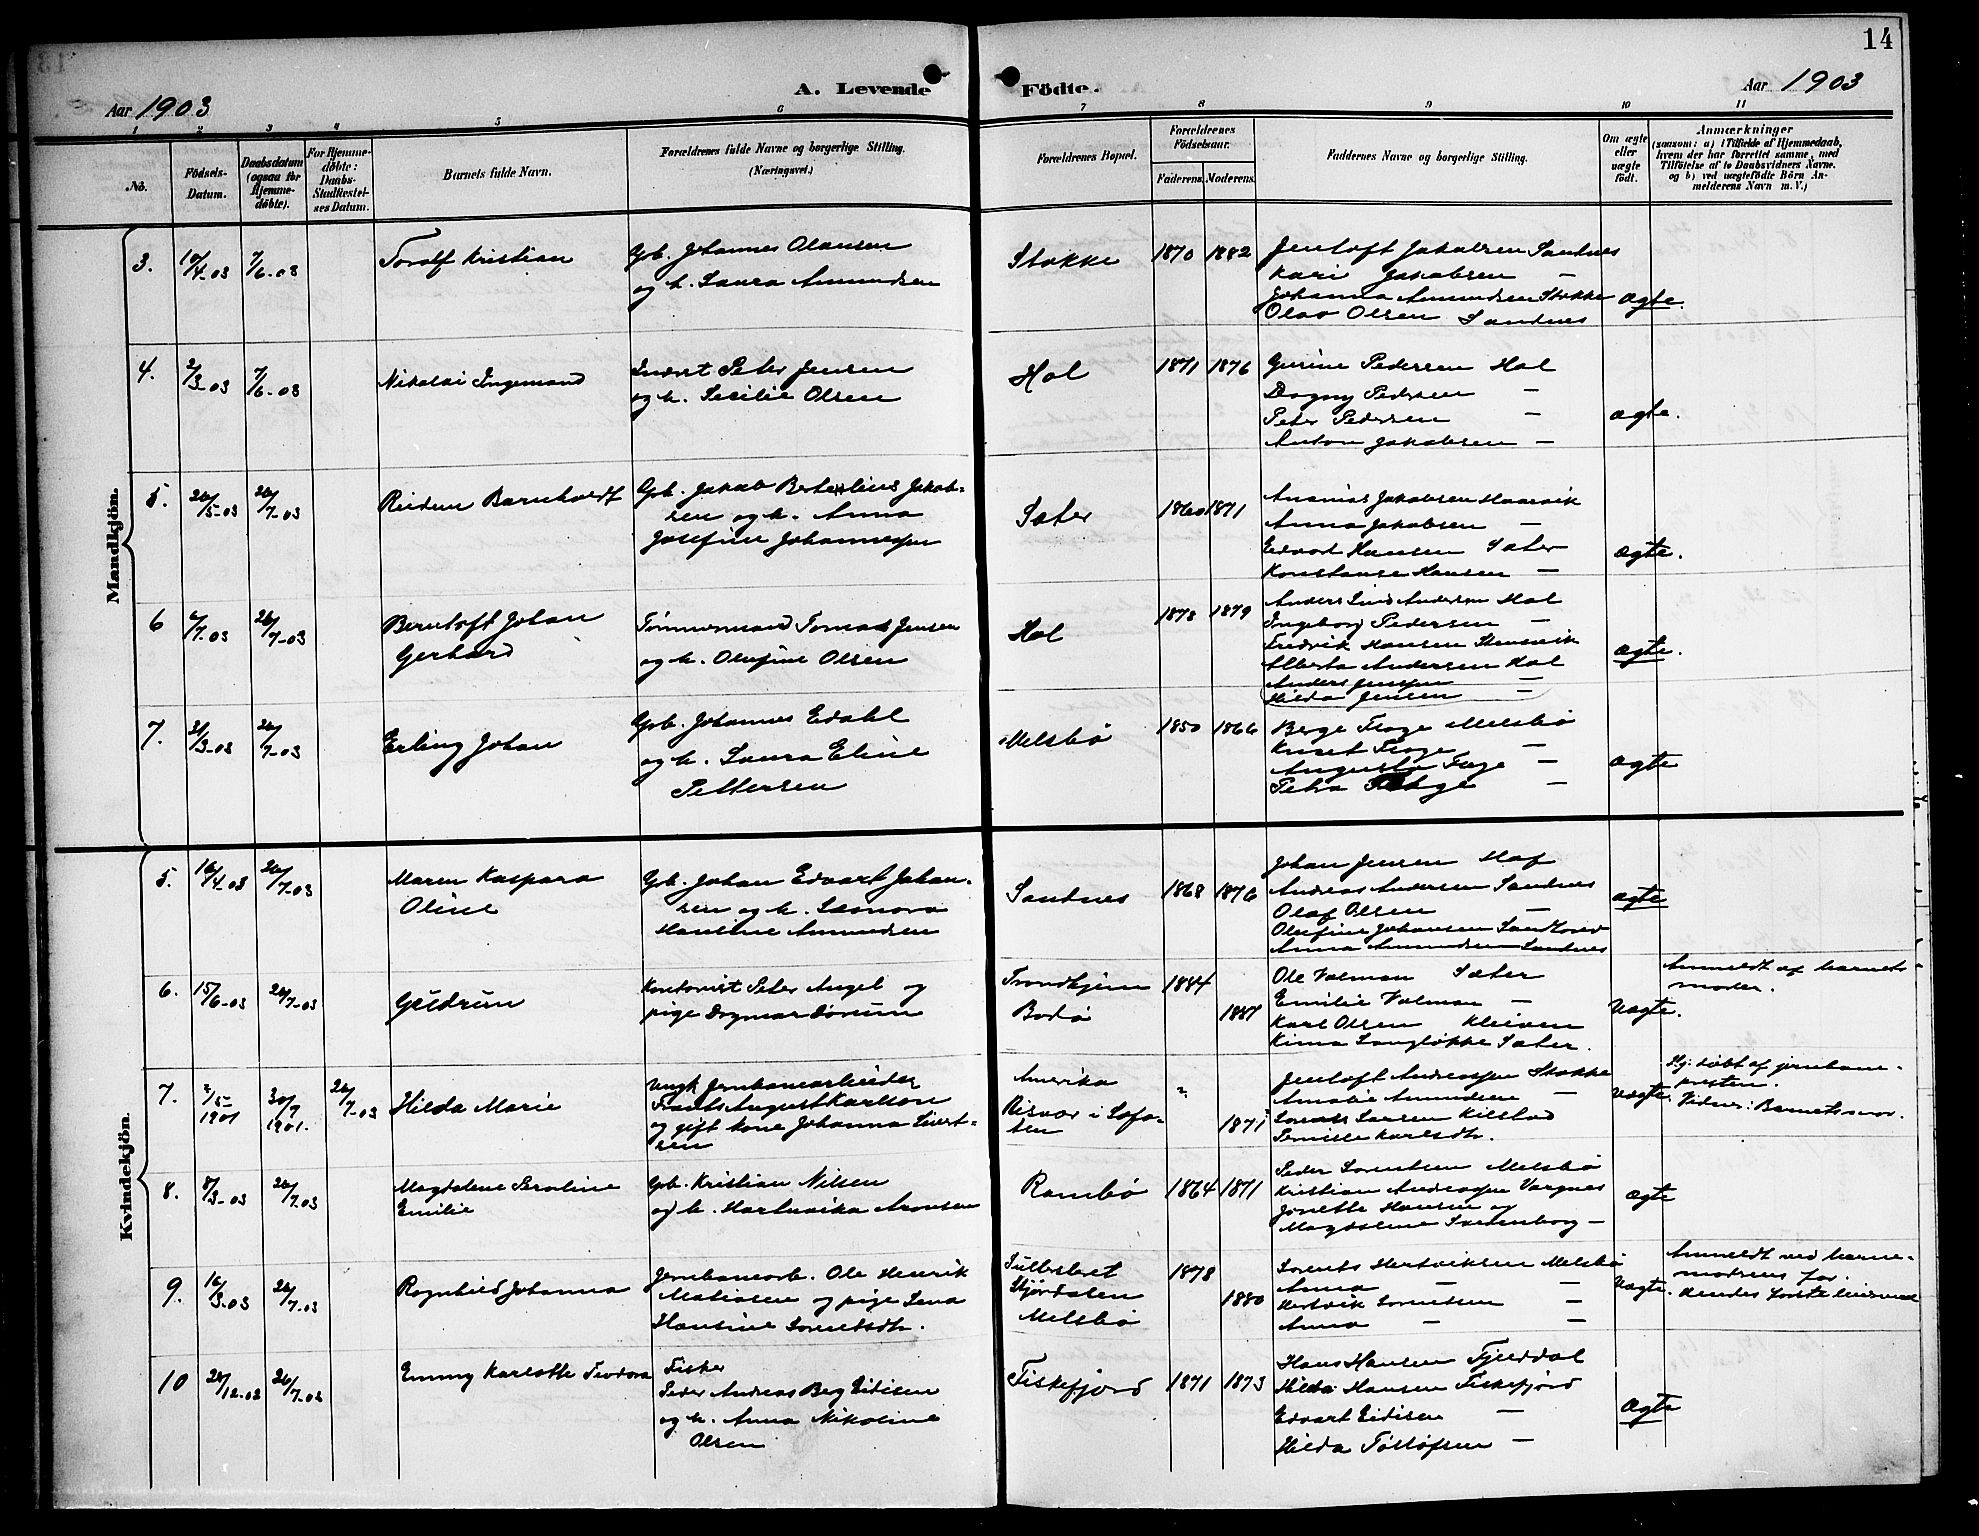 14
Aar 1903
A. Levende
Födte.
Aar 1903
1 2 3 4 5 6 7 8 9 10 11
No.
Födsels-
Datum.
Daabsdatum
(ogsaa for
Hjemme-
döbte).
For Hjemme-
döbte:
Daabs-
Stadfæstel-
ses Datum.
Barnets fulde Navn.
Forældrenes fulde Navne og borgerlige Stilling.
(Næringsvei.)
Forældrenes Bopæl.
Forældrenes
Födselsaar.
Faderens. Moderens.
Faddernes Navne og borgerlige Stilling.
Om ægte
eller
uægte
födt.
Anmærkninger
(saasom: a) i Tilfælde af Hjemmedaab,
hvem der har forrettet samme, med
Tilföielse af to Daabsvidners Navne,
og b) ved uægtefödte Börn An-
melderens Navn m. V.)
Mandkjön.
3. 10/4-03 7/6-03 Toralf Kristian
Gb. Johannes Olausen
og h. Laura Amundsen
Stokke 1870 1882
Jentoft Jakobsen Sandnes
Kari Jakobsen —
Johanna Amundsen Stokke
Olav Olsen Sandnes
ægte.
4. 2/3-03 7/6-03 Nikolai Ingemand
Inderst Peter Jensen
og h. Secilie Olsen
Hol 1871 1876
Gurine Pedersen Hol
Dagny Pedersen —
Peter Pedersen —
Anton Jakobsen —
ægte.
5. 20/5-03 26/7-03 Reidun Barnholdt
Gb. Jakob Bertelius Jakob-
sen og h. Anna
Josefine Johannessen
Sæter 1860 1871
Ananias Jakobsen Haarvik
Anna Jakobsen —
Edvard Hansen Sæter
Konstanse Hansen —
ægte.
6 6/7.03 26/7-03 Berntoft Johan
Gerhard
Tømmermand Tomas Jensen
og h. Olufine Olsen
Hol 1878 1879
Anders Lind Andersen Hol
Ingeborg Pedersen —
Fredrik Hansen Stensvik
Alberta Andersen Hol
Anders Jenssen —
Hilda Jensen —
ægte.
7. 31/3-03 26/7-03 Erling Johan
Gb. Johannes Edahl
og h. Laura Eline
Pettersen
Melsbö 1850 1866
Berge Hage Melsbö
Knut Hage —
Augusta Hage —
Petra Hage —
ægte
Kvindekjön.
5. 16/4.03 26/7.03 Maren Kaspara
Oline
Gb. Johan Edvart Johan-
sen og h. Leonora
Hansine Amundsen
Sandnes 1868 1876
Johan Jensen Hof
Andreas Andersen Sandnes
Olaf Olsen —
Olufine Johansen
Anna Amundsen Sandnes
ægte
6. 15/6-03 26/7-03 Gudrun
Kontorist Peter Angel og
pige Dagmar Dørum
Trondhjem 1884
Bodö 1887
Ole Valman Sæter
Emilie Valman —
Karl Olsen Kleiven
Kima Langløkke Sæter.
Uægte.
Anmeldt af barnets
moder.
7. 7/5-1901 30/7 1901. 26/7-03 Hilda Marie
Ungk. Jernbanearbeider
Frants August Karlson
og gift kone Johanna Sivert-
sen
Amerika "
Risvær i Lofo-
ten 1871
Jentoft Andreassen Stokke
Amalie Amundsen —
Lorents Larsen Kilstad
Pernille Karlsdtr.
Uægte.
Hj. döbt af jernbane-
presten.
Vidner: Barnets mor.
8. 8/3-03 26/7.03 Magdalene Peroline
Emilie
Gb. Kristian Nilsen
og h. Hartvika Aronsen
Ramsbö 1864 1871
Peder Lorentsen Melsbö
Kristian Andreassen Vargnes
Jonette Hansen og
Magdalene Svedenborg —
ægte
9. 16/3-03 26/7-03 Ragnhild Johanna
Jernbanearb. Ole Henrik
Matiasen og pige Lena
Hansine Lorentsdtr.
Stjørdalen 1878
Melsbö 1880
Lorents Hertviksen Melsbö
Anna — —
Hertvik Lorentsen —
Anna — —
Uægte.
Anmeldt ved barne-
modrens far.
10 28/12-02 26/7-03 Emmy Karlotte Teodora
Fisker
Peder Andreas Berg Eidisen
og h. Anna Nikoline
Olsen
Fiskefjord 1871 1873
Hans Hansen Fjelddal
Hilda Hansen Fiskefjord
Edvart Eidisen —
Hilda Tollöfsen —
ægte